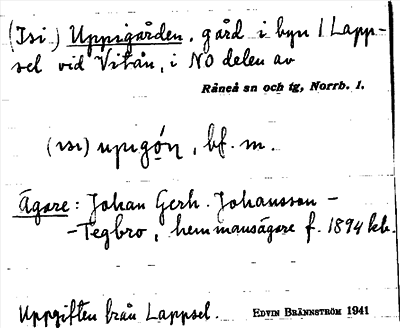 (Isi) Uppigården, gård i byn 1 Lapp-
sel vid Vitån, i NO delen av
Råneå sn och tg, Norrb. l.
(ısı) upıgọ́n, bf. m.
Ägare: Johan Gerh. Johansson -
-Tegbro, hemmansägare f. 1894 hb.
Uppgiften från Lappsel. EDVIN BRÄNNSTRÖM 1941